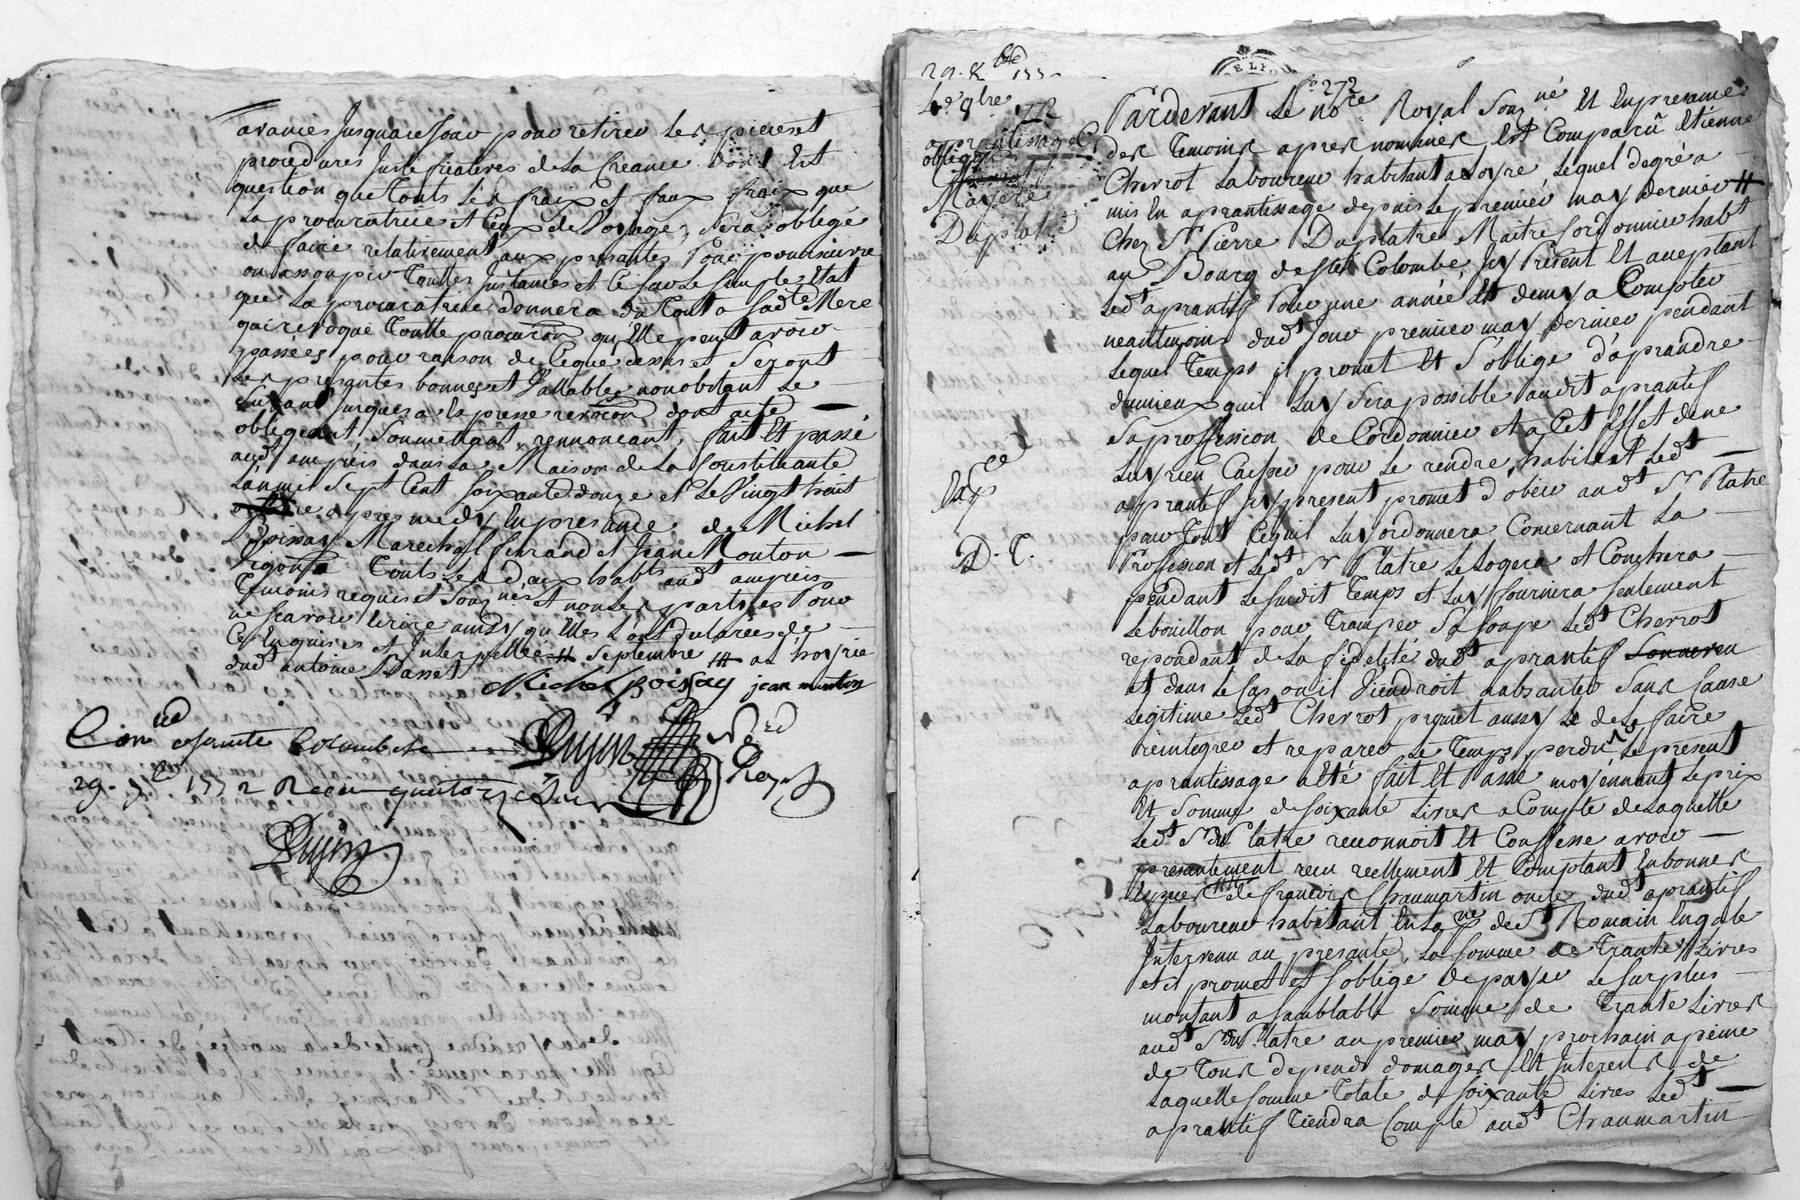 avances jusqu'a ce jour pour retirer les pieces et
procedures justificatives de la creance dont est
question que touts les fraix et faux fraix que
la procuratrice et ceux de voyage, sera obligé
de faire relativement aux presantes pour poursuivre
ou assoupir touttes instances et ce sur le simple etat
que la procuratrice donnera du tout a sad.te Mere
qui revoque toutte procu.ron qu'elle peut avoir
passées pour raison de ce que dessus et seront
les presantes bonnes et vallables nonobstant le
suranné jusques a expresse revo.con dont acte
obligeant, soumettant, rennonceant, fait et passé
aud. ampuis dans la Maison de la Constituante
L'an mil sept cent soixante douze et le vingt huit
apres midy en presance de Michel
Boissay Marechal ferrand et Jean Mouton
vigneron touts les deux hab.ts aud.t ampuis
temoins requis et souz.nés et non les parties pour
ne scavoir ecrire ainsy qu'elles l'ont declarées de
ce enquises et interpellée # septembre ## au
dud.t antoine Basset
Michel Boissay jean mouton
Con.lé a Sainte Colombe le
29. 7.bre 1772 Recu quatorze sous
29. 8.bre 177
272
apprantissage
obligé
Duplatre
Expé
D. C.
Pardevant le no.re Royal souz.né et en presance
des temoins apres nommés, est comparû etienne
Cherrot laboureur habitant a loyre lequel de gré a
mis en aprantissage depuis le premier may dernier #
Chez S.r Pierre Duplatre Maitre Cordonnier hab.t
au Bourg de S.te Colombe, icy present et acceptant
led.t aprantif pour une année et demy a compter
neantmoins dud.t jour premier may dernier pendant
lequel temps il promet et s'oblige d'aprandre
du mieux quil luy sera possible audit aprantif
sa proffession de Cordonnier et a cet effet de ne
luy rien cacher pour le rendre habile et led.t
aprantif icy present promet d'obeir aud.t S.r Platre
pour tout ce quil luy ordonnera concernant la
proffession et led.t S.r Platre le logera et couchera
pendant le susdit temps et luy fournira seulement
le bouillon pour tramper sa soupe led.t Cherrot
repondant de la fidelité dud.t aprantif
et dans le cas ou il viendroit a absanter sans cause
legitime led.t Cherrot promet aussy de le faire
reintegrer et reparer le temps perdu, le present
aprantissage a eté fait et passé moyennant le prix
et somme de soixante livres a compte de laquelle
led.t S.r Du Platre reconnoit et confesse avoir
presantement recu reellement et comptant en bonnes
especes de francois Chaumartin oncle dud.t aprantif
laboureur habitant en la p.sse de S.t Romain en gale
intervenu au presant, la somme de trante livres
et il promet et s'oblige de payer le surplus
montant a samblable somme de trante livres
aud.t S.r Du Platre au premier may prochain a peine
de tous depends domages et interets de
laquelle somme totale de soixante livres led.t
aprantif tiendra compte aud.t Chaumartin